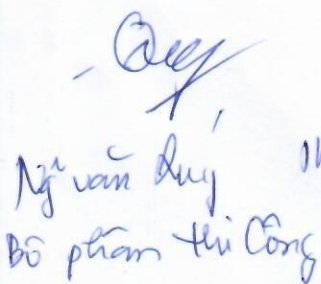 Quý
Ng̃ văn Quý
Bộ phân thi Công